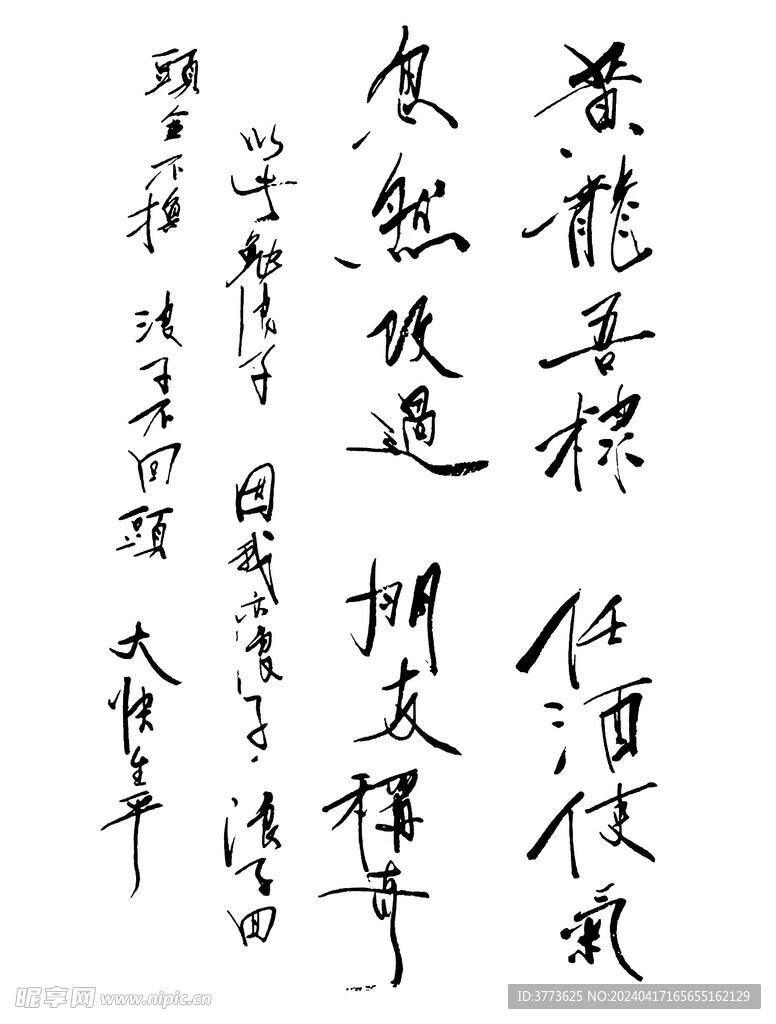 黄龍吾棣 任酒使氣
忽然改過 朋友稱奇
以此勉浪子 因我亦浪子，浪子回
頭金不換 浪子不回頭 大快生平
昵享网 www.nipic.cn
ID:3773625 NO:20240417165655162129